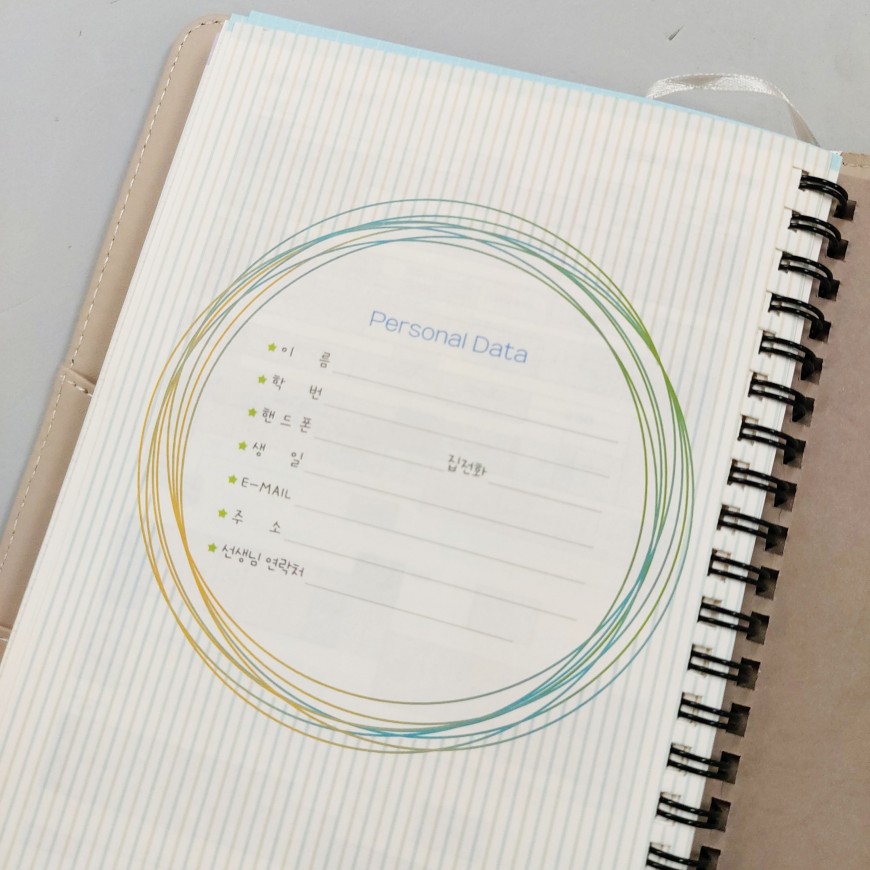 Personal Data
이 름
학 번
핸드폰
생 일 집전화
E-MAIL
주 소
선생님 연락처